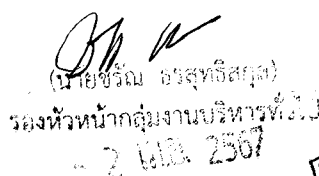 (นายชรัณ ธรสุทธิสกุล)
รองหัวหน้ากลุ่มงานบริหารทั่วไป
2 2567